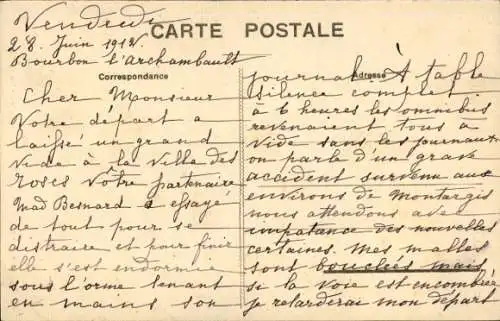 Vendredi
28 Juin 1912
CARTE POSTALE
Bourbon l'Archambault
Correspondance
Cher Monsieur
Votre départ a
laissé un grand
vide à la Ville des
Roses Votre partenaire
Mad Besnard a essayé
de tout pour se
distraire et pour finir
elle s'est endormie
sous l'orme tenant
en mains son
Adresse
journal. À table
silence complet.
à 6 heures les omnibus
revenaient tous à
vide sans les journaux
on parle d'un grave
accident survenu aux
environs de Montargis
nous attendons avec
impatance des nouvelles
certaines. Mes malles
sont bouclées mais
si la voie est encombrée
je retarderai mon départ